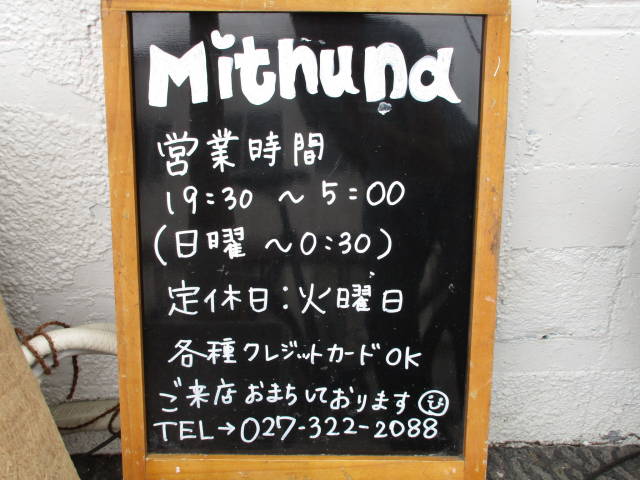 Mithuna
営業時間
19:30 〜 5:00
(日曜 〜0:30)
定休日:火曜日
各種クレジットカードOK
ご来店おまちしております
TEL→027-322-2088